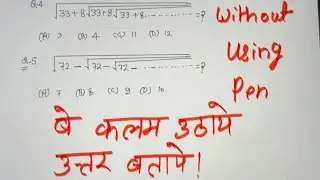 Q.4 √33+8√33+8√33+8............ = ?
(A) 3 (B) 4 (C) 11 (D) 12
Q.5 √72-√72-√72-............ = ?
(A) 7 (B) 8 (C) 9 (D) 10
Without
Using
Pen
बे कलम उठाये
उत्तर बतापे!